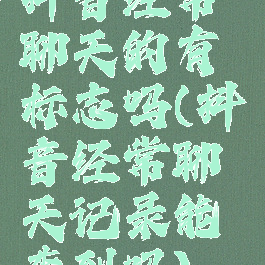 抖音经常
聊天的有
标志吗(抖
音经常聊
天记录能
查到吗)